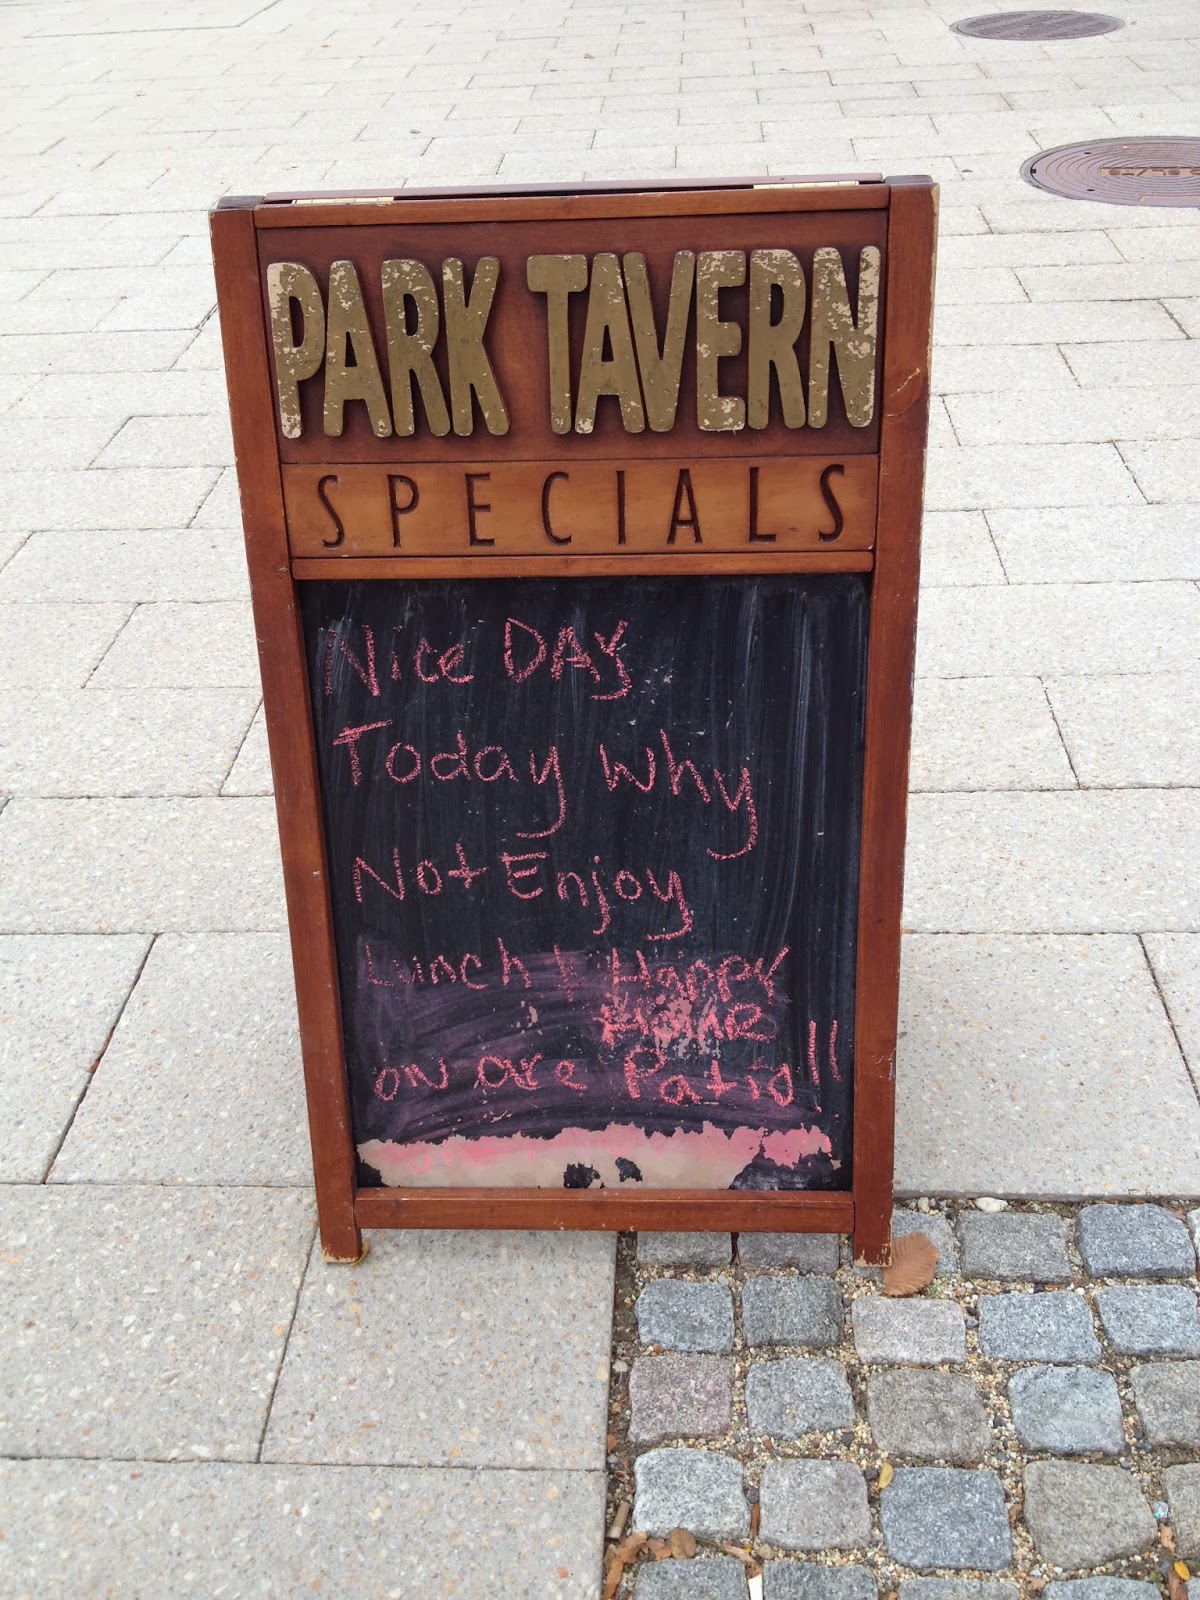 PARK TAVERN
SPECIALS
Nice DAY
Today why
Not Enjoy
Lunch / Happy
Hour
on are Patio!!